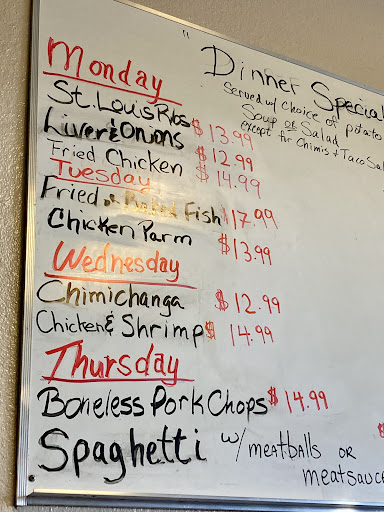 " Dinner Special
Served w/ Choice of potato
Soup or Salad
except for Chimis + Taco Sal
Monday
St. Louis Ribs $13.99
Liver & Onions $12.99
Fried Chicken $14.99
Tuesday
Fried or Baked Fish $17.99
Chicken Parm $13.99
Wednesday
Chimichanga $12.99
Chicken & Shrimp $14.99
Thursday
Boneless Pork Chops $14.99
Spaghetti w/ meatballs or $
meatsauce